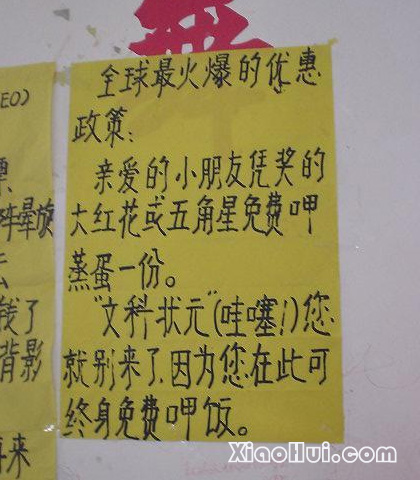 全球最火爆的优惠
政策:
亲爱的小朋友凭奖的
大红花或五角星免费呷
蒸蛋一份。
"文科状元"(哇噻!)您
就别来了.因为您在此可
终身免费呷饭。
EO)
阵晕旋
钱了
背影
再来
XiaoHui.com